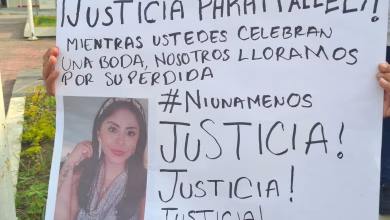 ¡JUSTICIA PARA
MIENTRAS USTEDES CELEBRAN
UNA BODA, NOSOTROS LLORAMOS
POR SU PERDIDA
#NIUNAMENOS
JUSTICIA!
JUSTICIA!
JUSTICIA!